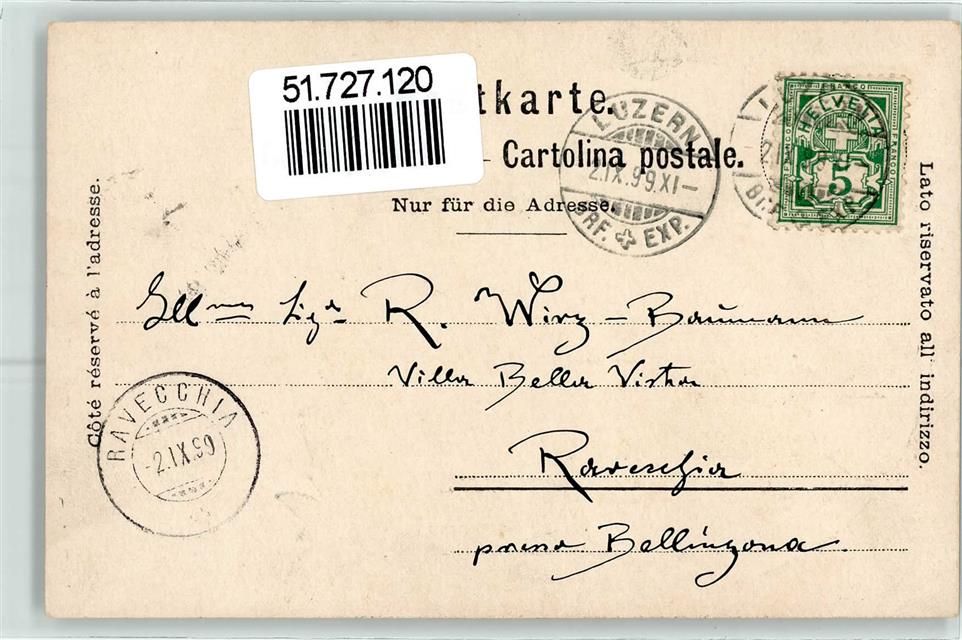 51.727.120
tkarte.
Cartolina postale.
Nur für die Adresse.
Côté réservé à l'adresse.
Lato riservato all' indirizzo.
LUZERN
2.IX.99.XI–
BRF. EXP.
FRANCO
HELVETIA
FRANCO
5
Ill mo Sigr R. Wirz – Baumann
Villa Bella Vista
Ravecchia
presso Bellinzona.
RAVECCHIA
-2.IX.99